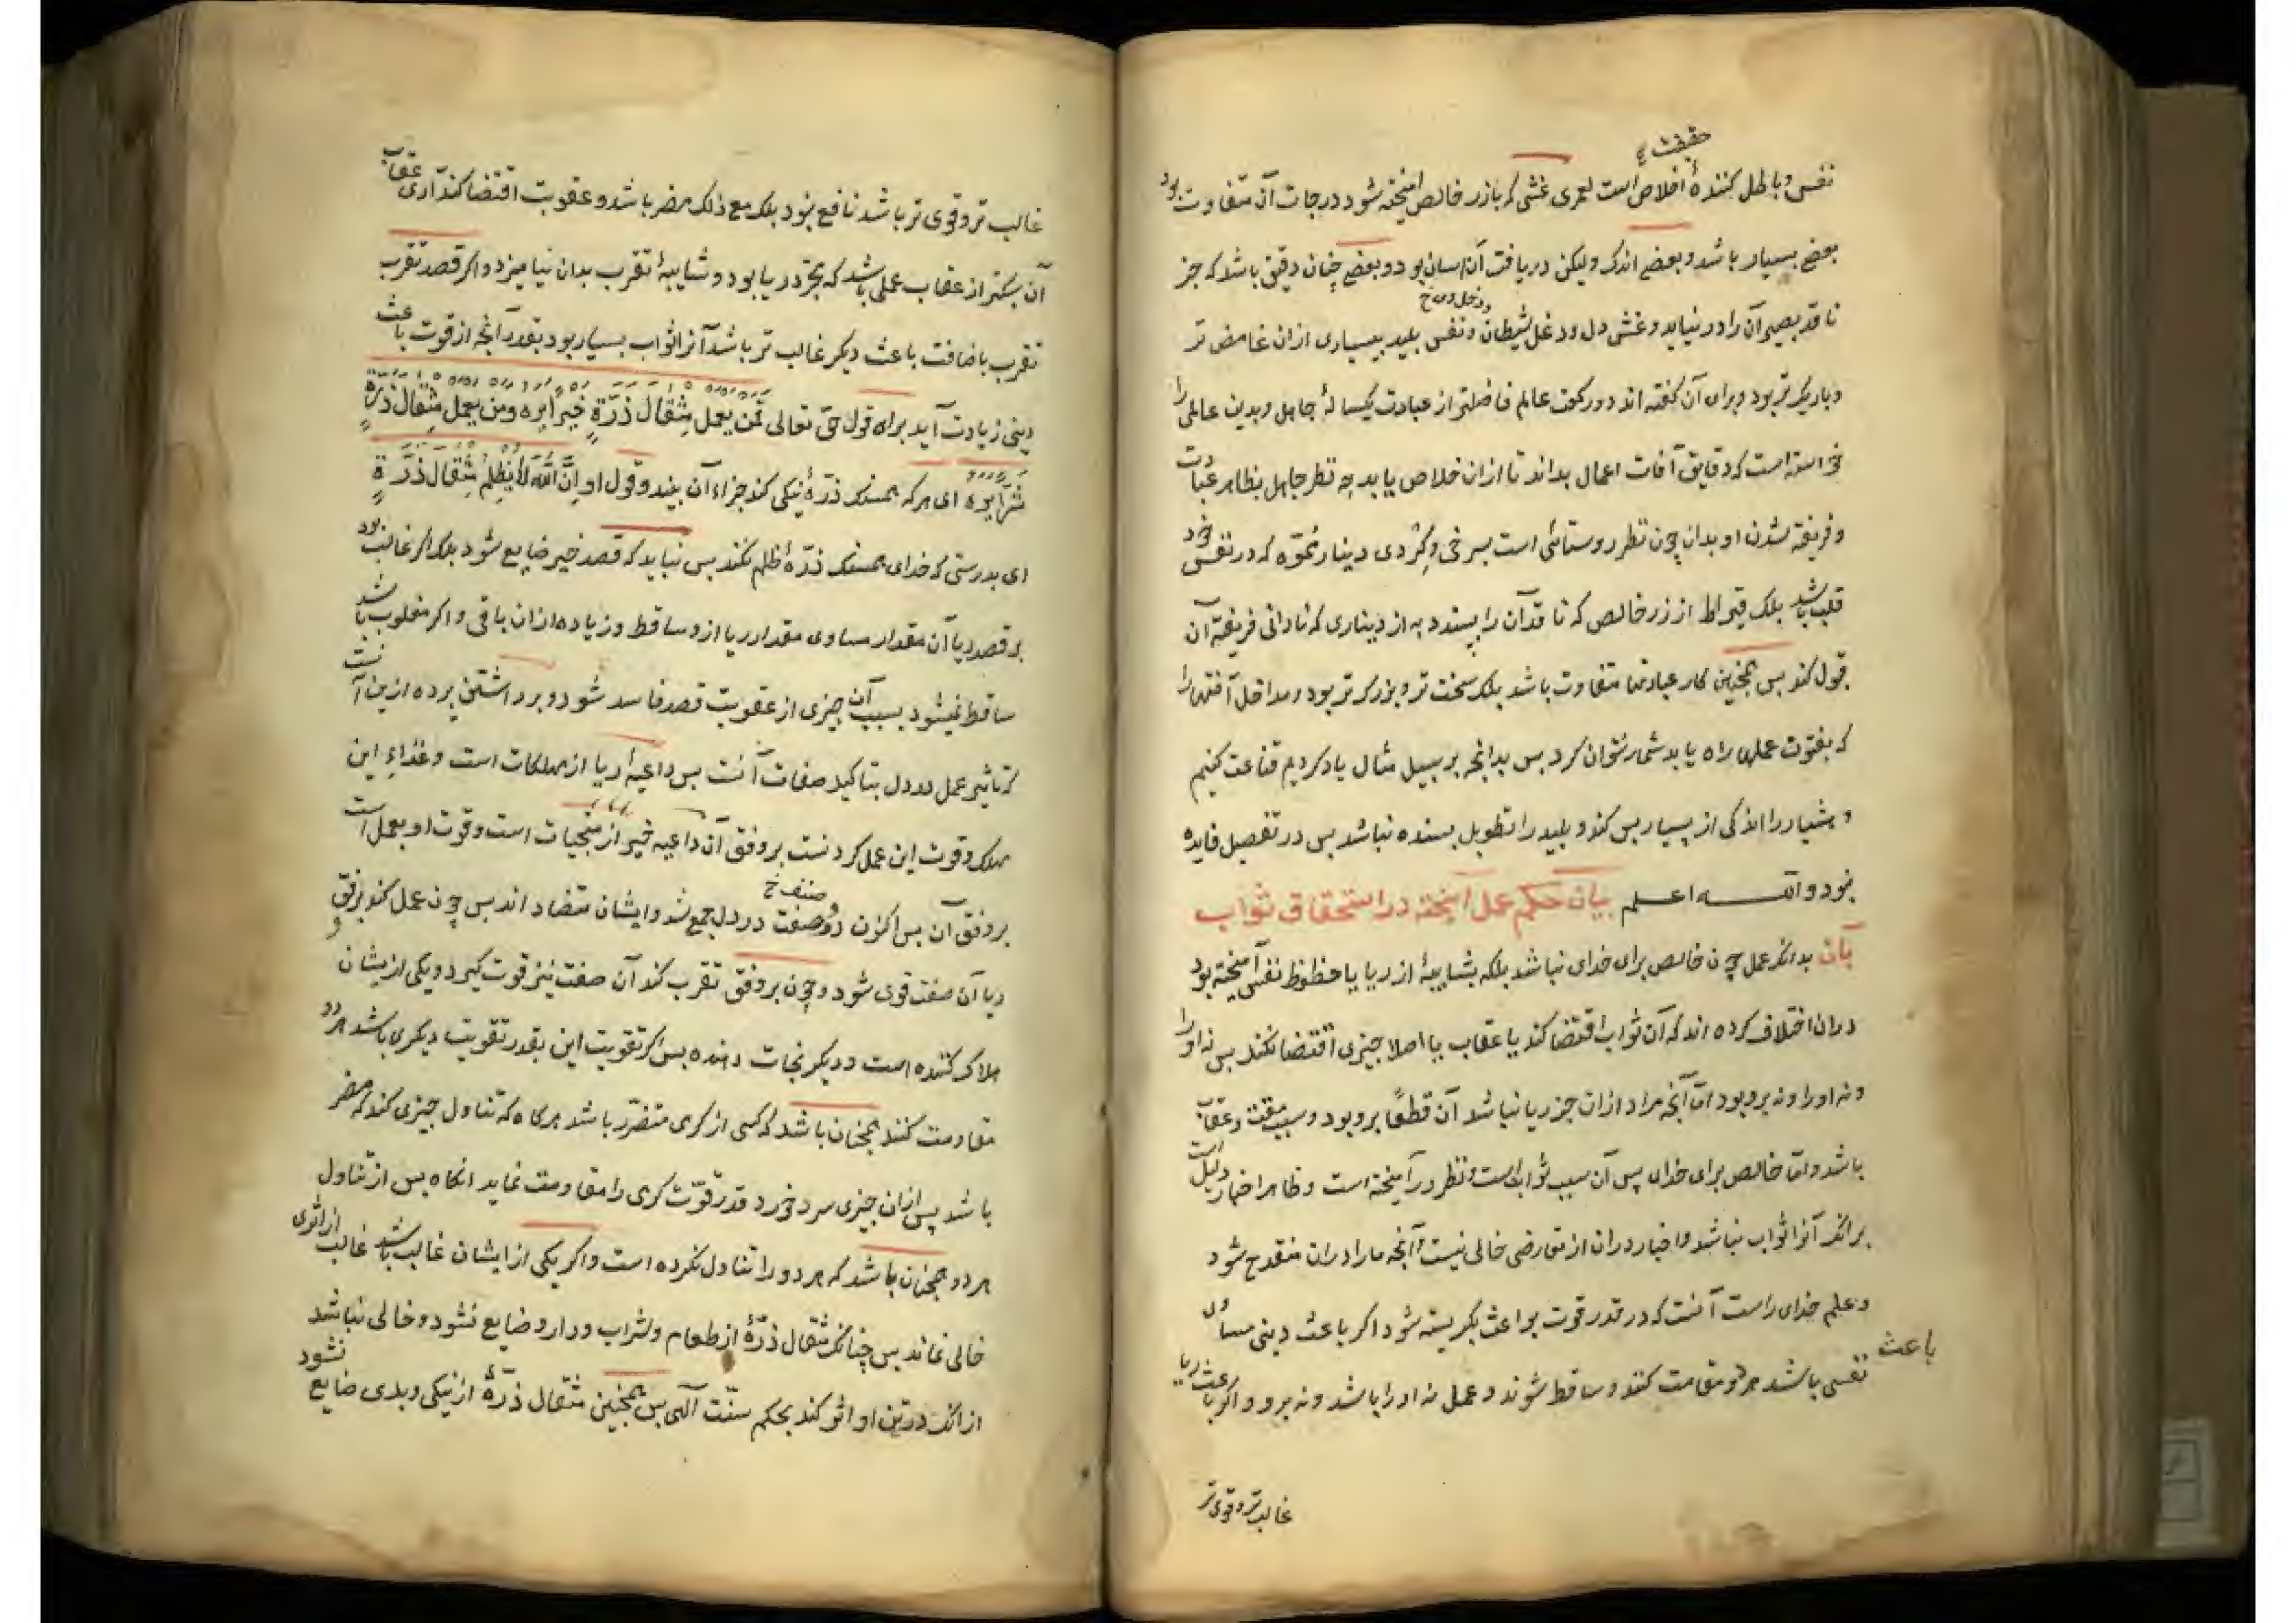 حقیقت
نفس و باطل کنندهٔ اخلاص است لعمری غشی که با زر خالص امیخته شود درجات آن متفاوت بود
بعضی بسیار باشد و بعضی اندک ولیکن دریافت آن اسان بود و بعضی چنان دقیق باشد که جز
و دخل وی خ
ناقد بصیر آن را در نیابد و غش دل و دغل شیطان و نفس پلید بسیاری ازان غامض تر
و باریک تر بود و برای آن گفته اند دو رکعت عالم فاضلتر از عبادت یکسالهٔ جاهل و بدین عالمی را
خواسته است که دقایق آفات اعمال بداند تا ازان خلاص یابد چه نظر جاهل بظاهر عبادت
و فریفته شدن او بدان چون نظر روستائی است بسرخی و گردی دینار مموّه که در نفس خود
قلب باشد بلک قیراط از زر خالص که ناقد آن را بپسندد به از دیناری که نادانی فریفتهٔ آن
قول کند بس همچنین کار عبادتها متفاوت باشد بلک سخت تر و بزرگ تر بود و مداخل آفتها را
که بفنوت عملهی راه یابد شمار نتوان کرد بس بدانچه بر سبیل مثال یاد کردیم قناعت کنیم
و هشیار را اندکی از بسیار بس کند و بلید را تطویل بسنده نباشد بس در تفصیل فایدهٔ
نبود والله اعلم بیان حکم عمل آمیخته در استحقاق ثواب
بآن بدانکه عمل چون خالص برای خدای نباشد بلکه بشایبهٔ از ریا یا حظوظ نفس آمیخته بود
دران اختلاف کرده اند که آن ثواب اقتضا کند یا عقاب یا اصلا چیزی اقتضا نکند بس نه او را
و نه او را و نه برو بود امّا آنچه مراد ازان جز ریا نباشد آن قطعًا برو بود و سبب مقت و عقاب
باشد و امّا خالص برای خدای بس آن سبب ثوابست و نظر در آمیخته است و ظاهر اخبار دلیل است
بر انک آنرا ثواب نباشد و اخبار دران از تعارضی خالی نیست و آنچه ما را دران منقدح شود
و علم خدای راست آنست که در قدر قوت بواعث نگریسته شود اگر باعث دینی مساوی
باعث
نفسی باشد هر دو مقاومت کنند و ساقط شوند و عمل نه او را باشد و نه برو و اگر باعث ریا
غالب تر و قوی تر
غالب تر و قوی تر باشد نافع نبود بلک مع ذلک مضر باشد و عقوبت اقتضا کند آری عقاب
آن سبکتر از عقاب عملی باشد که بتجرّد ریا بود و شایبهٔ تقرب بدان نیامیزد و اگر قصد تقرب
تقرب باضافت باعث دیگر غالب تر باشد آنرا ثواب بسیار بود بقدر آنچه از قوت باعث
دینی زیادت آید براه قول حق تعالی فمن یعمل مِثقال ذَرّةٍ خیرًا یره و من یعمل مِثقال ذَرّةٍ
شَرًّا یره ای هر که همسنک ذرّهٔ نیکی کند جزاء آن بیند و قول او اِنَّ اللّه لا یَظلِمُ مِثقالَ ذَرَّةٍ
ای بدرستی که خدای همسنک ذرّهٔ ظلم نکند بس نباید که قصد خیر ضایع شود بلک اگر غالب بود
بر قصد ریا آن مقدار مساوی مقدار ریا ازو ساقط و زیاده ازان باقی و اگر مغلوب باشد
ساقط نمیشود بسبب آن چیزی از عقوبت قصد فاسد شود و برداشتن پرده ازین آنست
که تاثیر عمل در دل بتاکید صفات آنست بس داعیهٔ ریا از مهلکات است و غذاء این
مهلک و قوت این عمل کردنست بر وفق آن داعیه خیر از منجیات است و قوت او بعمل است
صنف خ
بر وفق آن بس اکنون دو صفت در دل جمع شد و ایشان متضاد اند بس چون عمل کند بر وفق
ریا آن صفت قوی شود و چون بر وفق تقرب کند آن صفت نیز قوت گیرد و یکی از یشان
هلاک کننده است و دیگر نجات دهنده بس اگر تقویت این بقدر تقویت دیگری باشد هر دو
مقاومت کنند همچنان باشد که کسی از گرمی متضرّر باشد هرگاه که تناول چیزی کند که مضر
باشد پس ازان چیزی سرد خورد قدر قوّت گرمی را مقاومت نماید انگاه بس از تناول
هر دو همچنان باشد که هر دو را تناول نکرده است و اگر یکی از ایشان غالب باشد غالب از اثری
خالی نماند بس چنانک مثقال ذرّهٔ از طعام و شراب و دارو ضایع نشود و خالی نباشد
از انک در تن او اثر کند بحکم سنّت آلهی بس همچنین مثقال ذرّهٔ از نیکی و بدی ضایع نشود